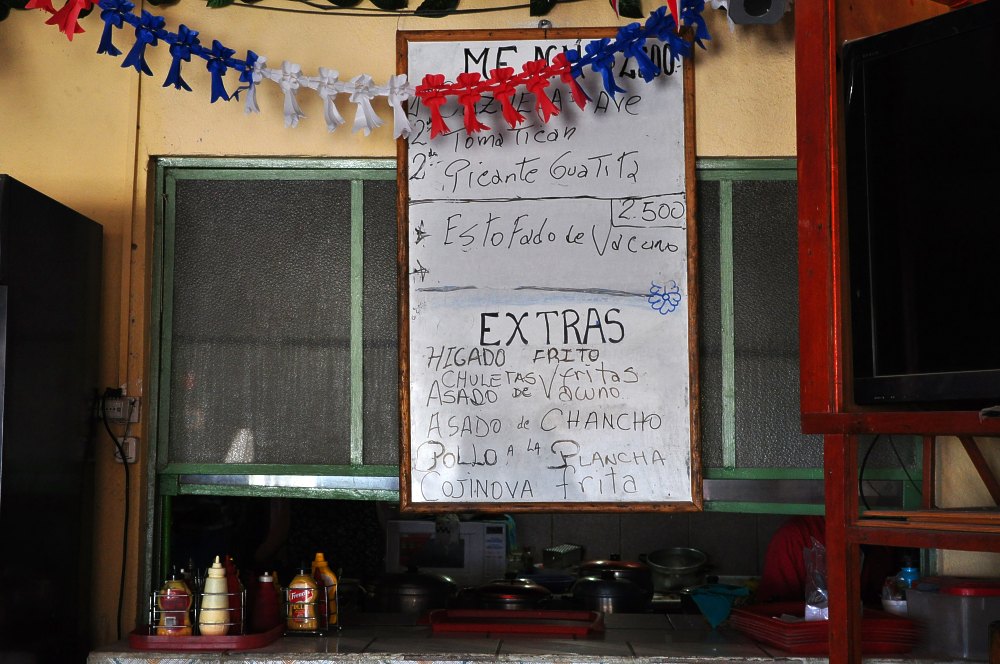 2500
1ª CAZUELA Ave
2ª Tomatican
2da Picante Guatita
2.500
EstoFado de Vacuno
EXTRAS
HIGADO FRITO
CHULETAS Fritas
ASADO DE Vacuno
ASADO de CHANCHO
POLLO A LA PLANCHA
COJINOVA Frita
French's